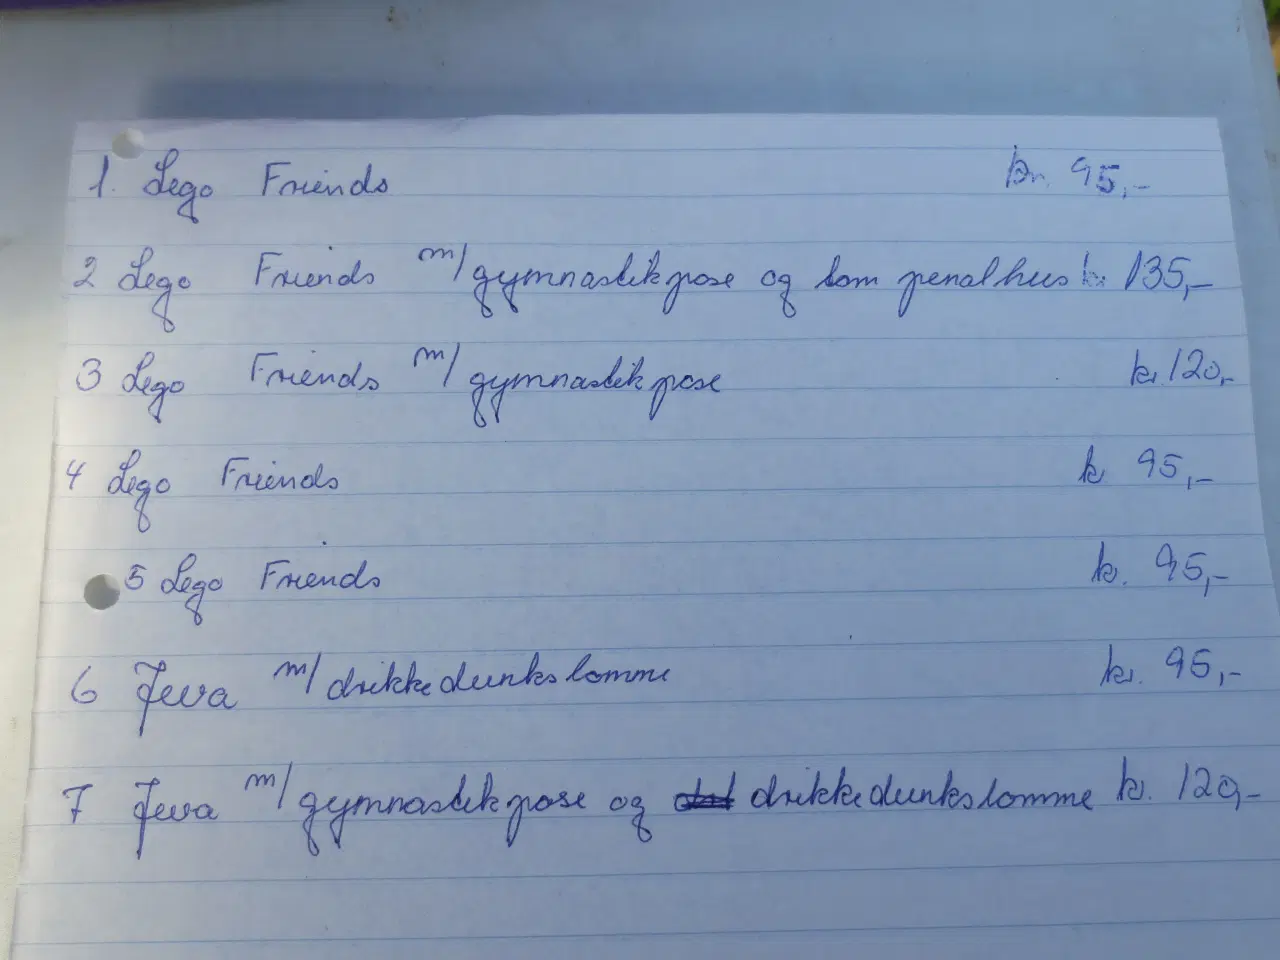 1. Lego Friends kr. 95,-
2 Lego Friends m/gymnastikpose og tom penalhus k. 135,-
3 Lego Friends m/gymnastikpose kr. 120,-
4 Lego Friends k 95,-
5 Lego Friends k. 95,-
6 Jeva m/drikkedunkslomme kr. 95,-
7 Jeva m/gymnastikpose og drikkedunkslomme k. 120,-